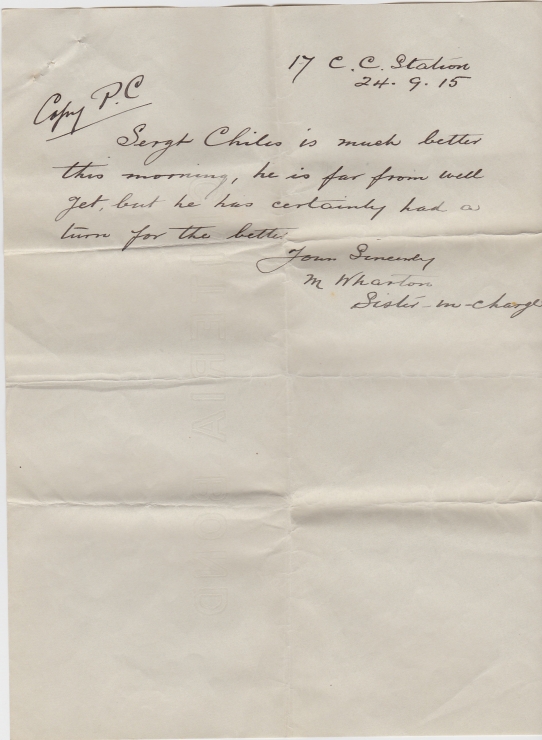 17 C. C. Station
24. 9. 15
Copy P.C
Sergt Chiles is much better
this morning, he is far from well
yet, but he has certainly had a
turn for the better
Yours Sincerely
M Wharton
Sister-in-charge